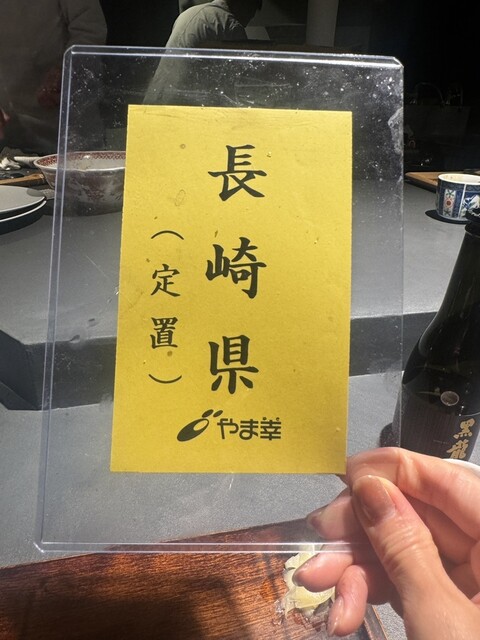 長崎県
(定置)
やま幸
黒龍